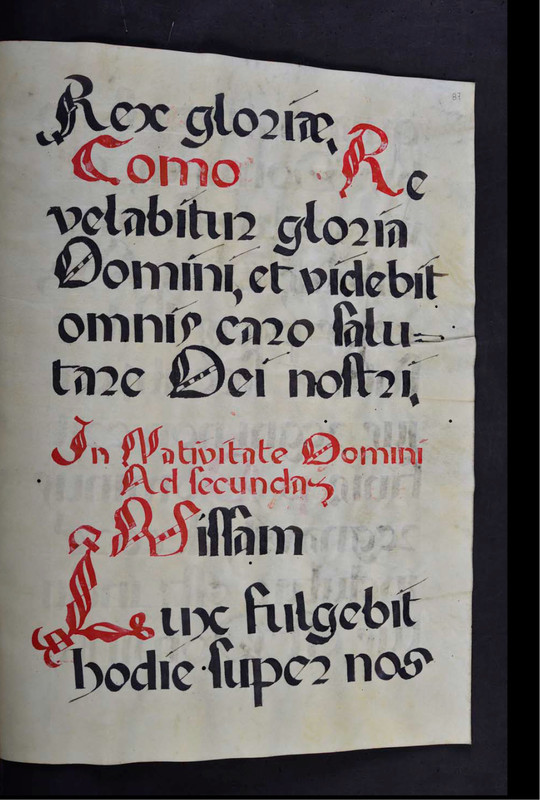 83
Rex gloriæ,
Como Re
velabitur gloria
Domini, et videbit
omnis caro salu=
tare Dei nostri,
In Nativitate Domini
Ad secundam
Missam
Lux fulgebit
hodie super nos